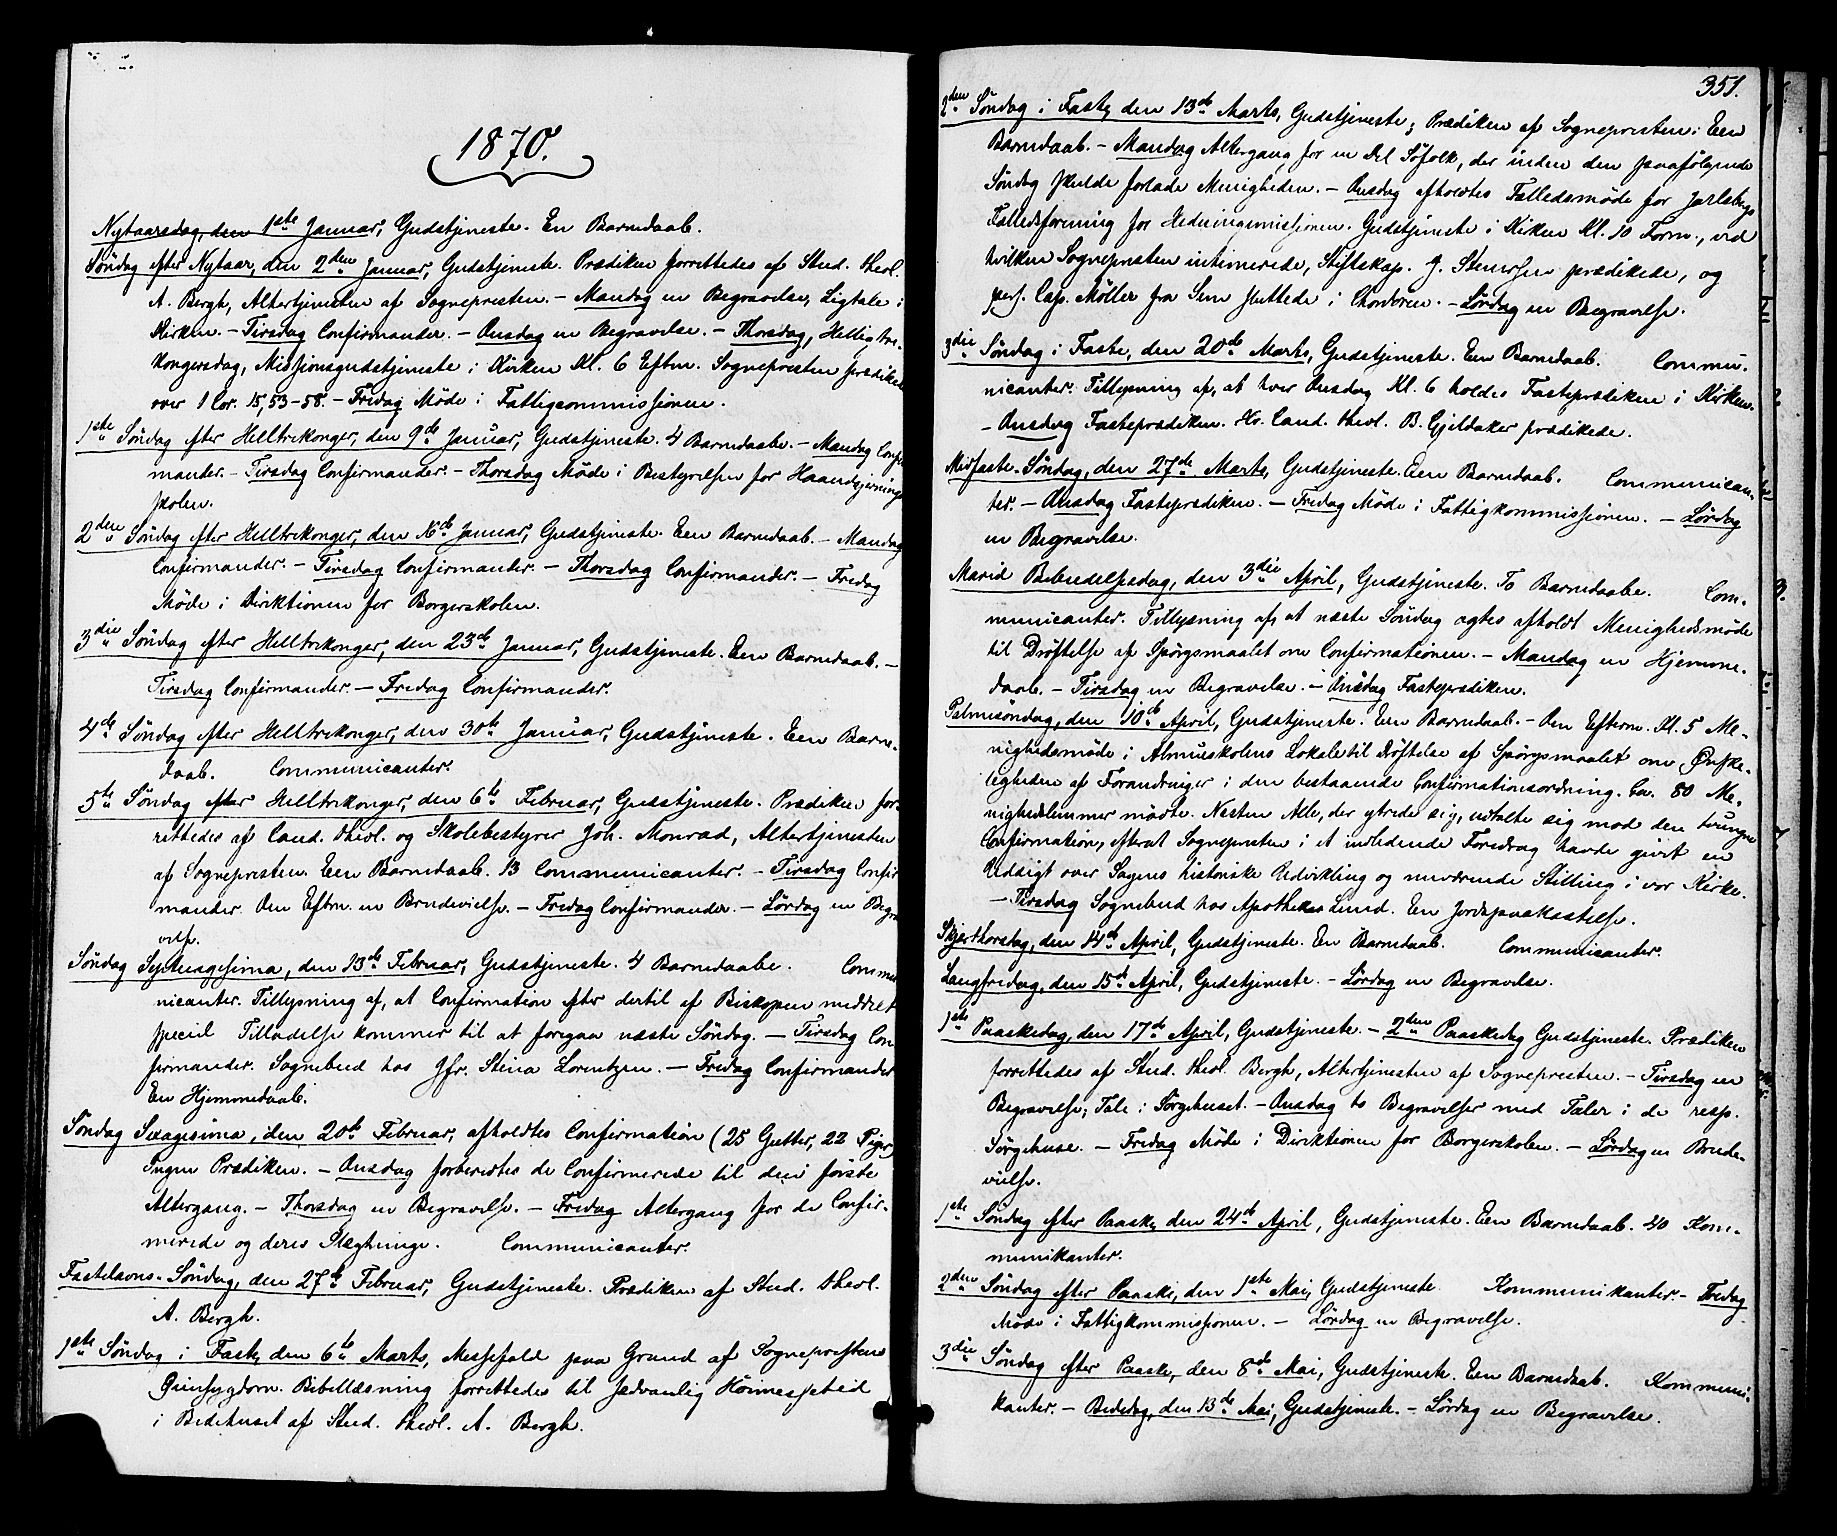 1870.
Nytaarsdag, den 1ste Januar, Gudstjeneste. En Barnedaab.
Søndag efter Nytaar, den 2den Januar, Gudstjeneste. Prædiken forrettedes af Stud. theol.
A. Bergh, Altertjenesten af Sognepresten. – Mandag en Begravelse, Ligtale i
Kirken. – Tirsdag Confirmander. – Onsdag en Begravelse. – Thorsdag, Helligtre-
kongersdag, Missionsgudstjeneste i Kirken Kl. 6 Eftm. Sognepresten prædikede
over 1 Cor. 15, 53-58. – Fredag Møde i Fattigcommissionen.
1ste Søndag efter Helltrekonger, den 9de Januar, Gudstjeneste. 4 Barnedaabe. – Mandag Confir
mander. – Tirsdag Confirmander. – Thorsdag Møde i Bestyrelsen for Haandgjernings
skolen.
2den Søndag efter Helltrekonger, den 16de Januar, Gudstjeneste. Een Barnedaab. – Mandag
Confirmander. – Tirsdag Confirmander. – Thorsdag Confirmander. – Fredag
Møde i Direktionen for Borgerskolen.
3die Søndag efter Helltrekonger, den 23de Januar, Gudstjeneste. Een Barnedaab. –
Tirsdag Confirmander. – Fredag Confirmander.
4de Søndag efter Helltrekonger, den 30te Januar, Gudstjeneste. Een Barne-
daab. Communicanter.
5te Søndag efter Helltrekonger, den 6te Februar, Gudstjeneste. Prædiken for-
rettedes af Cand. theol. og Skolebestyrer Joh. Monrad, Altertjenesten
af Sognepresten. Een Barnedaab. 13 Communicanter. – Tirsdag Confir
mander. Om Eftm. en Brudevielse. – Fredag Confirmander. – Lørdag en Begra
velse.
Søndag Septuagesima, den 13de Februar, Gudstjeneste. 4 Barnedaabe. Commu
nicanter. Tillysning af, at Confirmation efter dertil af Biskopen meddelt
speciel Tilladelse kommer til at foregaa næste Søndag. – Tirsdag Con
firmander. Sognebud hos Jfr. Stina Lorentzen. – Fredag Confirmander
En Hjemmedaab.
Søndag Sexagesima, den 20de Februar, afholdtes Confirmation (25 Gutter, 22 Piger)
Ingen Prædiken. – Onsdag forberedtes de Confirmerede til den første
Altergang. – Thorsdag en Begravelse. – Fredag Altergang for de Confir-
merede og deres Slægtninge. Communicanter.
Fastelavns-Søndag, den 27de Februar, Gudstjeneste. Prædiken af Stud. theol.
A. Bergh.
1ste Søndag i Faste, den 6te Marts, Messefald paa Grund af Sognepresten
Øiensygdom. Bibellæsning forrettedes til sedvanlig Høimessetid
i Bedehuset af Stud. theol. A. Bergh.
351.
2den Søndag i Faste, den 13de Marts, Gudstjeneste; Prædiken af Sognepresten. Een
Barnedaab. – Mandag Altergang for en Del Søfolk, der inden den paafølgende
Søndag skulde forlade Menigheden. – Onsdag afholdtes Fælledsmøde for Jarlsbergs
Fælledsforening for Hedningemissionen. Gudstjeneste i Kirken Kl. 10 Form., ved
hvilken Sognepresten intimerede, Stiftskap. J. Stenersen prædikede, og
pers. Cap. Møller fra Sem sluttede i Chordøren. – Lørdag en Begravelse.
3die Søndag i Faste, den 20de Marts, Gudstjeneste. Een Barnedaab. Commu-
nicanter. Tillysning af, at hver Onsdag Kl. 6 holdes Fasteprædiken i Kirken.
– Onsdag Fasteprædiken. Hr. Cand. theol. B. Gjeldaker prædikede.
Midfaste-Søndag, den 27de Marts, Gudstjeneste. Een Barnedaab. Communican-
ter. – Onsdag Fasteprædiken. – Fredag Møde i Fattigkommissionen. – Lørdag
en Begravelse.
Mariæ Bebudelsesdag, den 3die April, Gudstjeneste. To Barnedaabe. Com-
municanter. Tillysning af, at næste Søndag agtes afholdt Menighedsmøde
til Drøftelse af Spørgsmaalet om Confirmationen. – Mandag en Hjemme-
daab. – Tirsdag en Begravelse. – Onsdag Fasteprædiken.
Palmesøndag, den 10de April, Gudstjeneste. Een Barnedaab. – Om Efterm. Kl. 5 Me-
nighedsmøde i Almueskolens Lokale til Drøftelse af Spørgsmaalet om Ønske-
ligheden af Forandringer i den bestaaende Confirmationsordning. Ca. 80 Me-
nighedslemmer mødte. Næsten Alle, der ytrede sig, udtalte sig mod den tvungne
Confirmation, efterat Sognepresten i et indledende Foredrag havde givet en
Udsigt over Sagens historiske Udvikling og nuværende Stilling i vor Kirke.
– Tirsdag Sognebud hos Apotheker Lund. En Jordspaakastelse.
Skjærthorsdag, den 14de April, Gudstjeneste. En Barnedaab. Communicanter.
Langfredag, den 15de April, Gudstjeneste. – Lørdag en Begravelse.
1ste Paaskedag, den 17de April, Gudstjeneste. – 2den Paaskedag Gudstjeneste. Prædiken
forrettedes af Stud. theol. Bergh, Altertjenesten af Sognepresten. – Tirsdag en
Begravelse; Tale i Sørgehuset. – Onsdag to Begravelser med Taler i de resp.
Sørgehuse. – Fredag Møde i Direktionen for Borgerskolen. – Lørdag en Brude-
vielse.
1ste Søndag efter Paaske, den 24de April, Gudstjeneste. Een Barnedaab. 40 Kom-
munikanter.
2den Søndag efter Paaske, den 1ste Mai, Gudstjeneste. Kommunikanter. – Fredag
Møde i Fattigkommissionen. – Lørdag en Begravelse.
3die Søndag efter Paaske, den 8de Mai, Gudstjeneste. Een Barnedaab. Kommuni-
kanter. – Bededag, den 13de Mai, Gudstjeneste. – Lørdag en Begravelse.